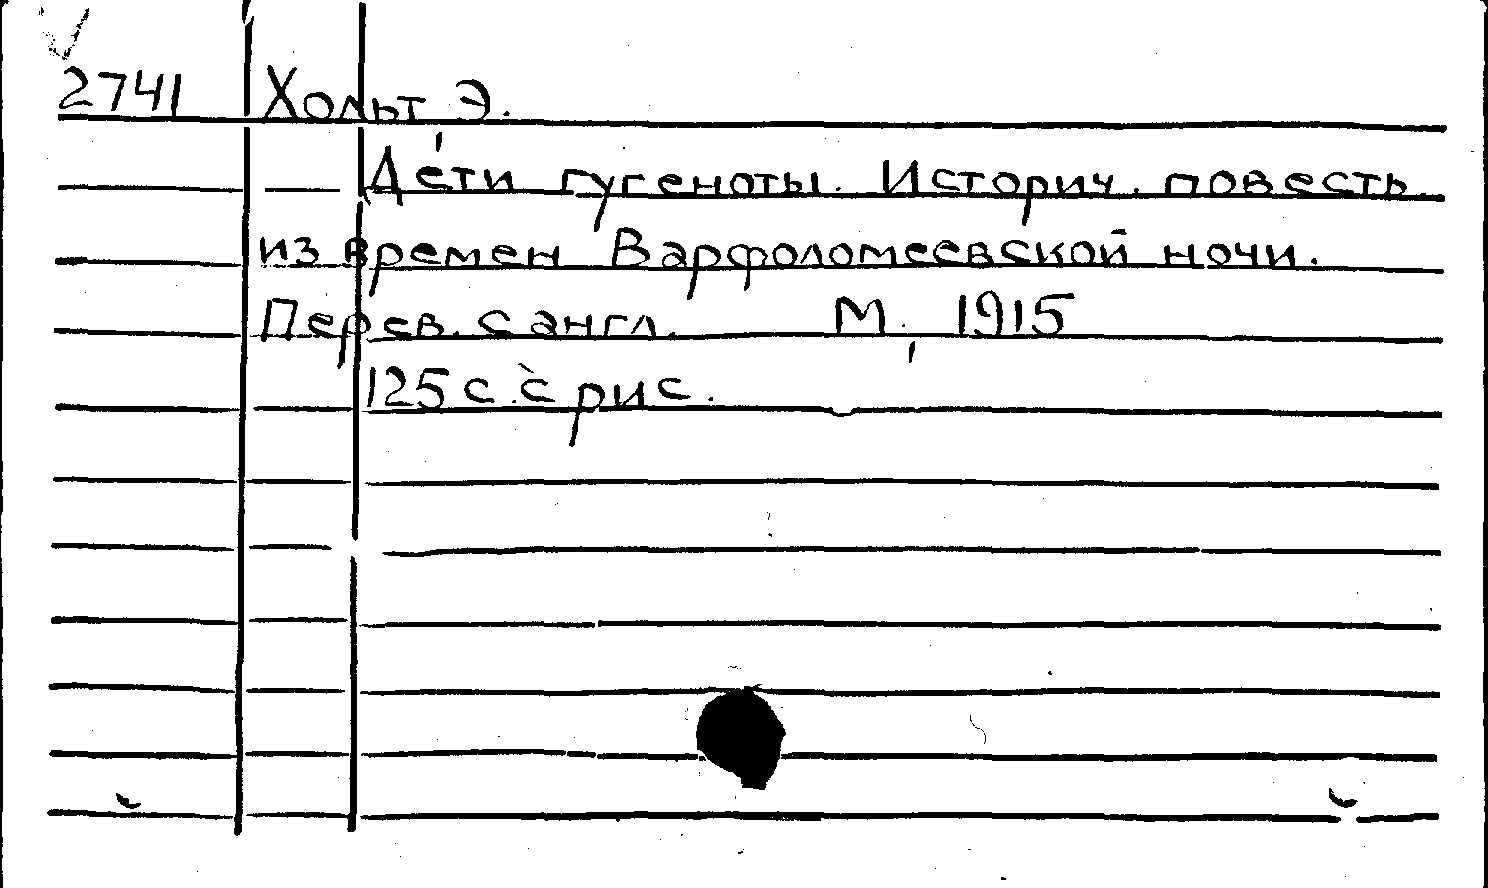 2741 Хольт Э.
Дети гугеноты. Историч. повесть
из времен Варфоломеевской ночи.
Перев. с англ. М., 1915
125 с. с рис.